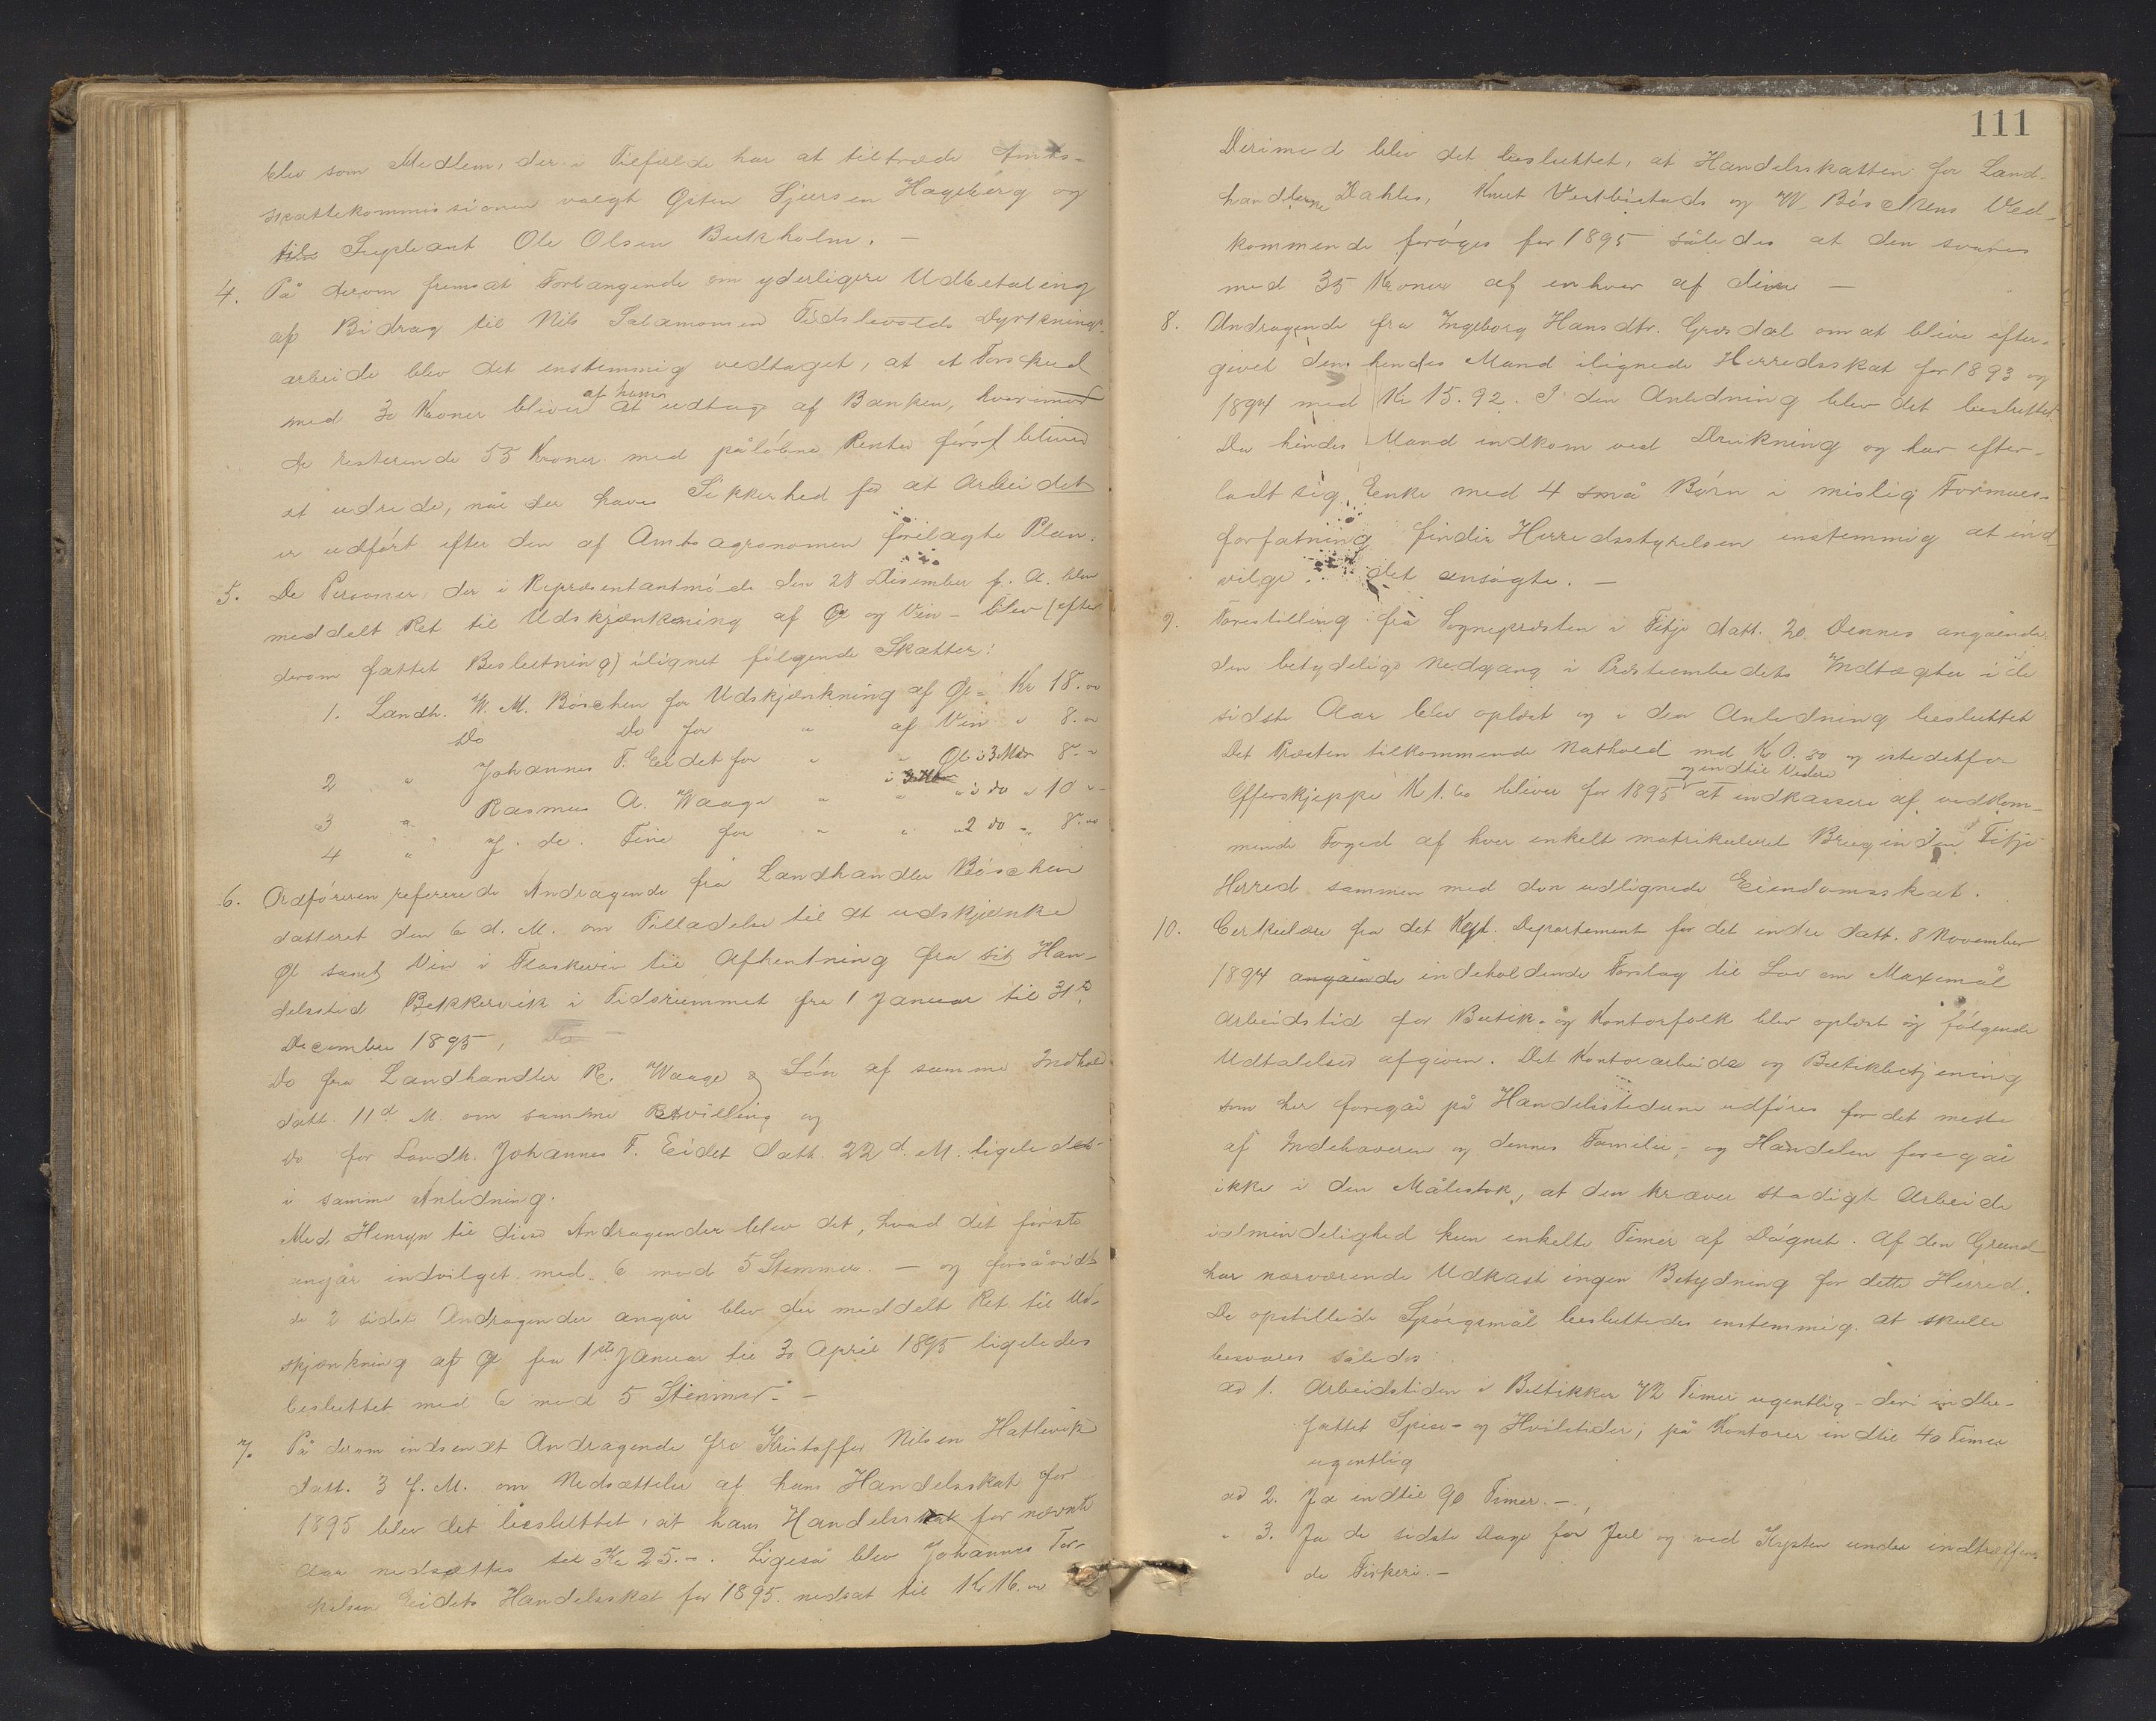 blev som Medlem, der i Tilfælde har at tiltræde Amts-
skattekommissionen valgt Østen Sjursen Hageberg og
Supleant Ole Olsen Bukholm. —
4. På derom fremsat Forlangende om yderligere Udbetaling
af Bidrag til Nils Salamonsen Tidslevolds Dyrknings-
arbeide blev det enstemmig vedtaget, at et Forskud
med 30 Kroner bliver af ham at udtage af Banken, hvorimod
de resterende 55 Kroner med påløbne Renter først bliver
at udrede, når der haves Sikkerhed for at Arbeidet
er udført efter den af Amtsagronomen forelagte Plan.
5. De Personer, der i Repræsentantmøde den 28 Desember f. A. blev
meddelt Ret til Udskjænkning af Øl og Vin – blev (efter
derom fattet Beslutning) ilignet følgende Skatter:
1. Landh. W. M. Böschen for Udskjænkning af Øl – Kr 18.00
Do Do for " af Vin " 8.00
2 " Johannes T. Eidet for " " Øl i 3 Mdr 8 " "
3 " Rasmus A. Waage " " " i do " 10 " -
4 " J. de Fine for " " " 2 do - " 8.00
6. Ordføreren refererede Andragende fra Landhandler Böschen
datteret den 6 d. M. om Tilladelse til at udskjænke
Øl samt Vin i Flaskevis til Afhentning fra sit Han-
delssted Bekkervik i Tidsrummet fra 1 Januar til 31te
December 1895,
Do fra Landhandler R. Waage & Søn af samme Indhold
datt. 11 d. M. om samme Bevilling og
Do for Landh. Johannes T. Eidet datt. 22 d. M. ligeledes
i samme Anledning.
Med Hensyn til disse Andragender blev det, hvad det første
angår indvilget med 6 mod 5 Stemmer. — og forsåvidt
de 2 sidste Andragender angår blev der meddelt Ret til Ud-
skjænkning af Øl fra 1ste Januar til 30 April 1895 ligeledes
besluttet med 6 mod 5 Stemmer. —
7. På derom indsendt Andragende fra Kristoffer Nilsen Hatlevik
datt. 3 f. M. om Nedsættelse af hans Handelsskat for
1895 blev det besluttet, at hans Handelsskat for nævnte
Aar nedsættes til Kr 25.00. Ligeså blev Johannes Tor-
kelsen Eidets Handelsskat for 1895 nedsat til Kr 16.00
111
Derimod blev det besluttet, at Handelsskatten for Land-
handlerne Dahles, Knut Vestbøstads og W. Böschens Ved-
kommende forøges for 1895 således at den svares
med 35 Kroner af enhver af disse —
8. Andragende fra Ingeborg Hansdtr. Grosdal om at blive efter-
givet den hendes Mand ilignede Herredsskat for 1893 og
1894 med Kr 15.92. I den Anledning blev det besluttet
Da hendes Mand indkom ved Drukning og har efter-
ladt sig Enke med 4 små Børn i mislig Formues-
forfatning finder Herredsstyrelsen enstemmig at ind
vilge det ansøgte. —
9. Forestilling fra Sognepræsten i Fitje datt. 20 Dennes angående
den betydelige Nedgang i Præsteembedets Indtægter i de
sidste Aar blev oplæst og i den Anledning besluttet
Det Præsten tilkommende Nathold med Kr 0.80 og istedetfor
Offerskjeppe Kr 1.60 bliver for 1895 og indtil Videre at indkassere af vedkom-
mende Foged af hver enkelt matrikuleret Brug inden Fitje
Herred sammen med den udlignede Eiendomsskat.
10. Cirkulære fra det Kgl. Departement for det indre datt. 8 November
1894 angående indeholdende Forslag til Lov om Maximal
Arbeidstid for Butik- og Kontorfolk blev oplæst og følgende
Udtalelser afgiven. Det Kontorarbeide og Butikbetjening
som her foregår på Handelsstederne udføres for det meste
af Indehaveren og dennes Familie, – og Handelen foregår
ikke i den Målestok, at den kræver stadigt Arbeide
ialmindelighed kun enkelte Timer af Døgnet. Af den Grund
har nærværende Udkast ingen Betydning for dette Herred.
De opstillede Spørgsmål besluttedes enstemmig at skulle
besvares således:
ad 1. Arbeidstiden i Butikker 72 Timer ugentlig – deri indbe-
fattet Spise- og Hviletider; på Kontorer indtil 40 Timer
ugentlig
ad 2. Ja indtil 90 Timer. —
" 3. Ja de sidste Dage før Jul og ved Kysten under indtræffen-
de Fiskeri. —